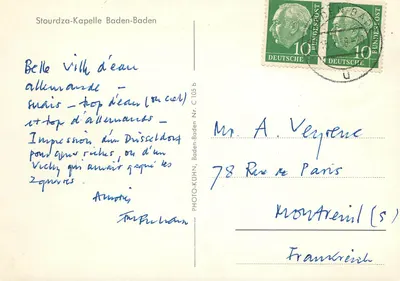 Stourdza-Kapelle Baden-Baden
Belle ville d'eau
allemande -
mais - trop d'eau (au ciel)
et trop d'allemands -
Impression d'un Düsseldorf
pour gens riches, ou d'un
Vichy qui aurait gagné les
2 guerres.
Amitiés
PHOTO-KUHN, Baden-Baden Nr. C 105 b
10 DEUTSCHE BUNDESPOST
10 DEUTSCHE BUNDESPOST
Mr. A. Veyrenc
78 Rue de Paris
MONTREUIL (S)
Frankreich